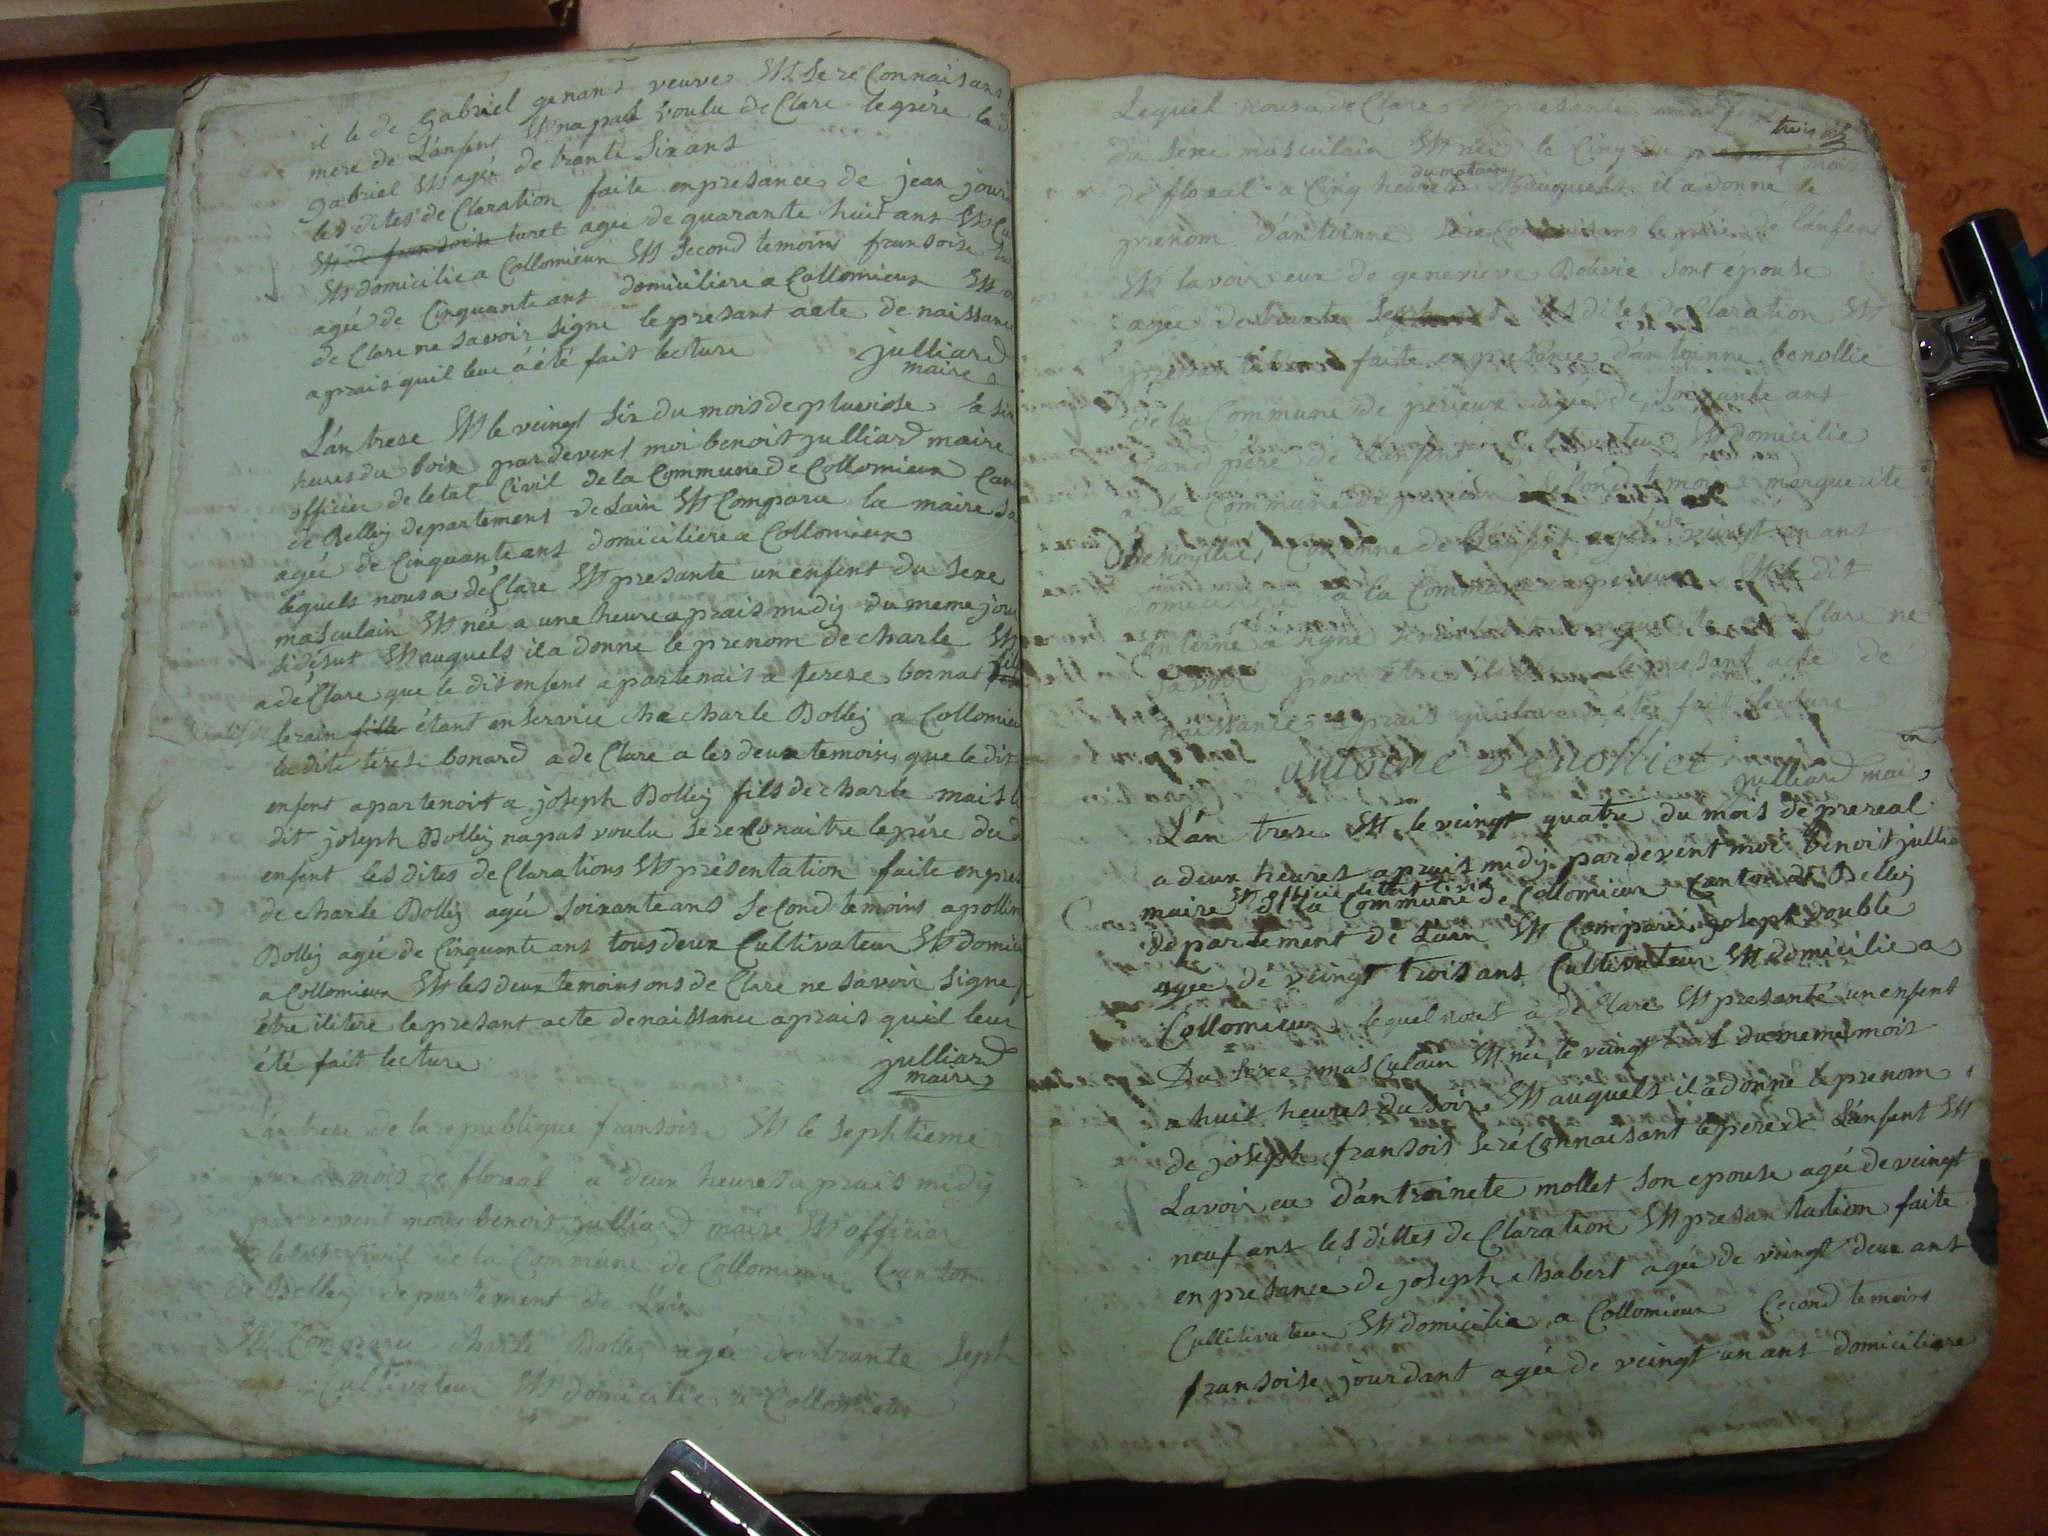 il le de gabriel genant veuve Et Se re Connaisans
mere de L'anfent Et na pas voulu de Clare le père la
gabriel Et agée de trante Six ans
les dites de Claration faite en presance de jean jour
Et de fransoise turet agée de quarante huit ans Et Cu
Et domicilie a Collomieux Et Second temoins fransoise
agée de Cinquante ans domiciliere a Collomieux Et
de Clare ne Savoir Signe le presant acte de naissance
aprais quil leur a été fait lecture julliard
maire
L'an trese Et le veingt Six du mois de pluviose la Six
heures du Soir pardevent moi benoit julliard maire
officier de letat Civil de la Commune de Collomieux Can
de Belley departement de Lain Et Comparu la maire Sa
agée de Cinquante ans domiciliere a Collomieux
lequels nous a de Clare Et presante un enfent du Sexe
masculain Et née a une heure aprais midy du meme jour
Sidesut Et auquels il a donne le prenom de charle Et
a de Clare que le dit enfent apartenait a terese bornat
Serain fille étant en Service che charle Bolley a Collomieu
la dite teres bonard a de Clare a les deux temoins que le dit
enfent apartenoit a joseph Bolley fils de charle mais le
dit joseph Bolley na pas voulu Se re Conaitre le père du d
enfent les dites de Clarations Et présentation faite en pres
de charle Bolley agée Soixante ans Second temoins apollin
Bolley agée de Cinquante ans tous deux Cultivateur Et domici
a Collomieux Et les deux temoins ons de Clare ne Savoir Signe p
être iliteré le presant acte de naissance aprais quil leur
été fait lecture julliard
maire
L'an trese de la republique fransoise Et le Sephtieme
jour du mois de floreal a deux heures aprais midy
pardevent nous benoit julliard maire Et officier
de letat Civil de la Commune de Collomieux Canton
de Belley departement de Lain
Et Comparu charle Bolley agée de trante Seph
ans Cultivateur Et domicilie a Collomieux
Lequel nous a de Clare Et presante un anfent
trois
du Sexe masculain Et née le Cinq du mois
de floreal a Cinq heures du mataint Et auquels il a donné le
prenom d'antoinne Se re Connaisans le père de l'anfent
Et lavoir eux de genevieve Bobie Sont épouse
agée de trante Seph ans les dites de Claration Et
presantation faite en presance d'antoinne benollie
de la Commune de perieux agée de Soixante ans
grand père de l'anfent Cultivateur Et domicilie
a la Commune de perieux Second temoins marguerite
Benoyllie de l'anfent agée de veingt un ans
domiciliere a la Commune de perieux Et le dit
antoine a Signe de Clare ne
Savoir pour être le presant acte de
naissance aprais quil leur a été fait lecture
antoine Benolliet
julliard maire
L'an trese Et le veingt quatre du mois de prereal
a deux heures aprais midy pardevent moi benoit jullia
maire Et officie de letat Civil de La Commune de Collomieux Canton de Belley
departement de Lain Et Comparu joseph double
agée de veingt trois ans Cultivateur Et domicilie a
Collomieux lequel nous a de Clare Et presanté un enfent
Du Sexe masCulain Et née le veingt trois du meme mois
a huit heures du Soir Et auquels il a donne le prenom
de joseph fransois Se ré Connaisant le père de L'anfent Et
Lavoir eu d'antoinete mollet Son epouse agée de veingt
neuf ans les dittes de Claration Et presantation faite
en presance de joseph chabert agée de veingt deux ans
Cultivateur Et domicilie a Collomieux Cecond temoins
fransoise jourdant agée de veingt un ans domiciliere